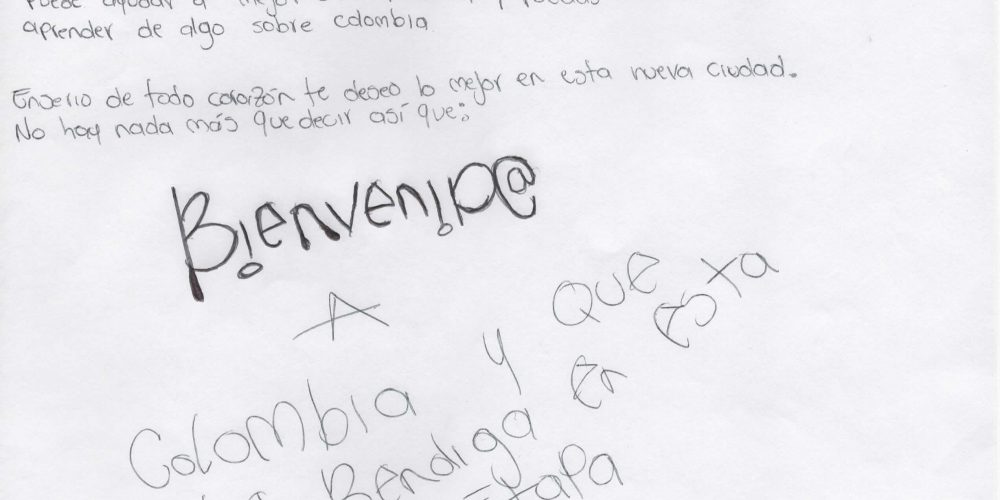 puede ayudar a mejor
aprender de algo sobre colombia
Enserio de todo corazón te deseo lo mejor en esta nueva ciudad.
No hay nada más que decir así que:
Bienvenid@
A
Colombia y que
Bendiga en esta
Etapa